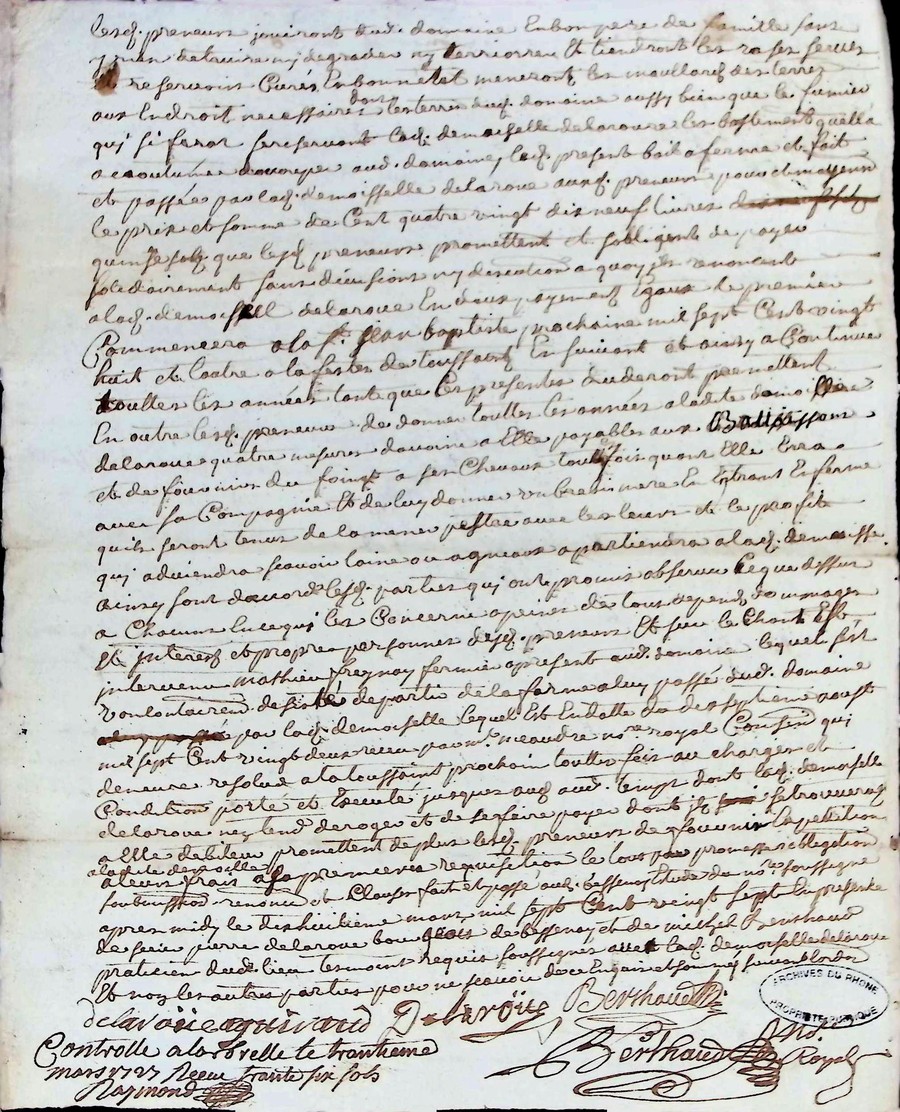 lesd. preneurs jouiront dud. domaine En bon pere de famille sans
y rien detruire ny degrader ny terriorrer Et tiendront les rases serves
et reservoirs Curés En bon Etat meneront les moullares des terres
aux Endroit necessaires dans les terres dud. domaine aussy bien que le fumier
qui si fera se reservant lad. demoiselle delaroue les bastiments quell a
acoutumé doccuper aud. domaine, led. present bail a ferme Et fait
et passée par lad. demoisselle delaroue ausd. preneurs pour et moyennant
le prix et somme de Cent quatre vingt dix neuf livres
quinse sols que lesd. preneurs promettent et sobligent de payer
solidairement sans divisions ny discution a quoy ils renoncent
a lad. demoisell delaroue En deux payements Egaux le premier
Commencera a la st. Jean baptiste prochaine mil sept Cent vingt
huit et lautre a la festes de toussaint En suivant et ainsy a Continuer
touttes les années tant que les presentes dureront promettent
En outre lesd. preneurs de donner touttes les années a ladite demoiselle
delaroue quatre mesures davoine a Elle payables aux
et de fournir du foingt a ses Chevaux touttes fois quant Elle Erra
avec sa Compagnie Et de luy donner un brebi mere En Entrant En ferme
quils seront tenus de la mener pestre avec les leurs et le profits
qui adviendra scavoir laine ou agneaux apartiendra a lad. demoiselle
ainsy sont dacord lesd. parties qui ont promis observer Ce que dessus
a Chacuns En ce qui les Concerne a peines de tous depend, dommages
Et interest et propre personnes desd. preneurs Et sur le Champ Est
intervenu Mathieu Freynay fermier apresent aud. domaine lequel sest
vonlontairem. desisté de partir de la ferme a luy passé dud. domaine
par lad. demoiselle lequel Est En datte du dix septieme aoust
mil sept Cent vingt deux receu par me. meaudre nore royal Consen. qui
demeure resolué a la toussaint prochain touttes fois aux charges et
Condition porte et Execulé jusques aud. temps dont lad. demoiselle
delaroue ny tend deroger et de se faire payer dont il se trouverat
a Elle debiteur promettent de plus lesd. preneurs de fournir la petition
a ladite demoiselle
a leurs frais a la premieres requisition le tous par promesses obligation
soubmission renonce et Clauses fait et passé aud. bessenay Etude du nore soussigne
apres midy le dixhuitieme mars mil sept Cent vingt sept En presence
de sieur pierre delaroue bourgeois de bessenay et de michel Berthaud
praticien dud. lieu temoins requis soussignés avec lad. demoiselle delaroue
Et non les autres parties pour ne scavoir de ce Enquis et sommés suivant lordce
delaroüe Delaroüe Berthaud
Berthaud no. Royal
Controlle a larbrelle le trantieme
mars 1727 Receu trante six sols
Raymond
ARCHIVES DU RHONE
PROPRIÉTÉ PUBLIQUE